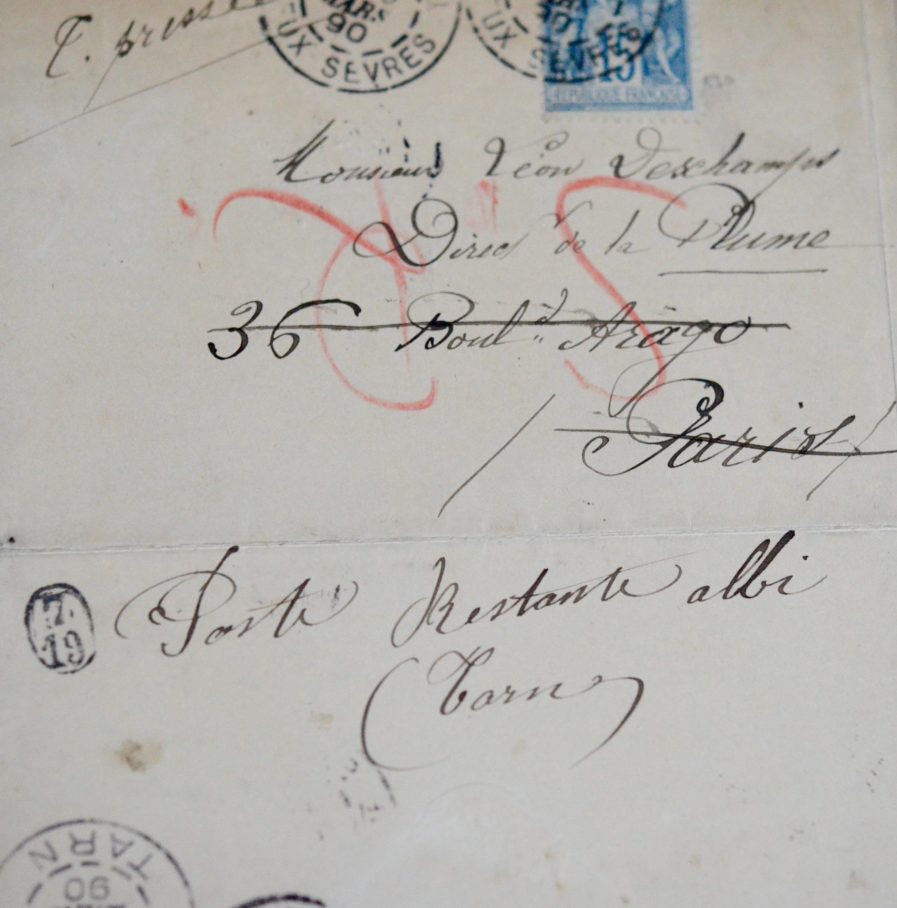 T. pressé
MARS
90
UX SEVRES
UX SEVRES
15
REPUBLIQUE FRANÇAISE
Monsieur Léon Deschamps
Direc^r de la Plume
36 Boul^d Arago
Paris
7
19
Poste Restante albi
(Tarn)
TARN
90